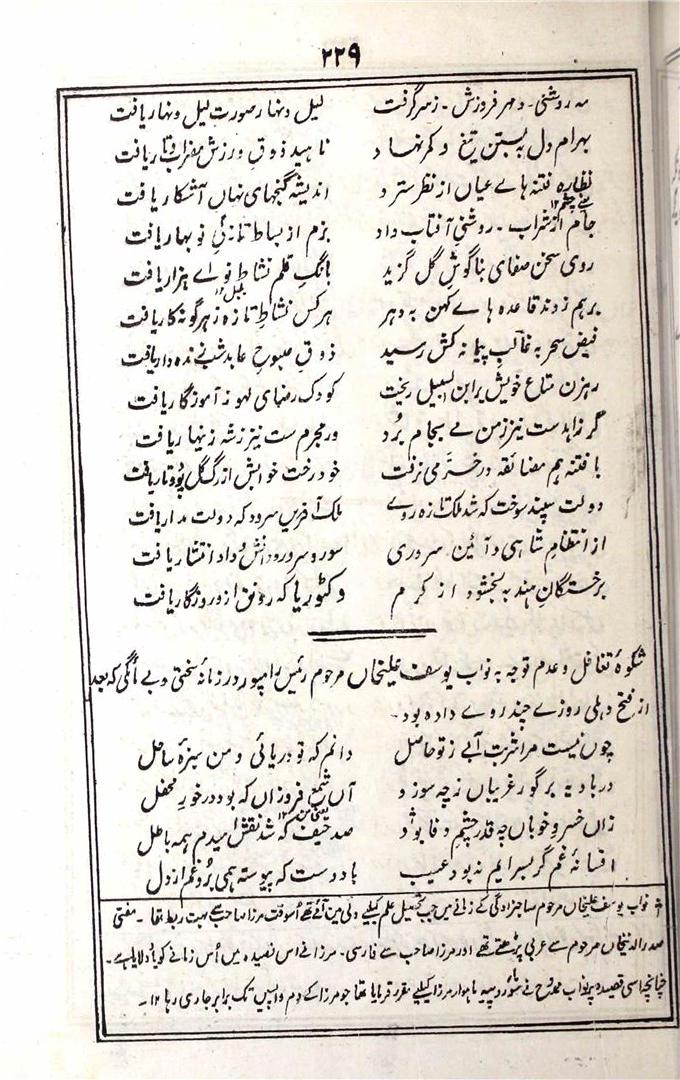 ۲۲۹
مہ روشنی - و مہر فروزش - ز سر گرفت لیل و نہار صورتِ لیل و نہار یافت
بہرام دل بہ بستن تیغ و کمر نہاد ناہید ذوقِ ورزش مضراب و تار یافت
نظارہ فتنہ ہاے عیاں از نظر سترد اندیشہ گنجہای نہاں آشکار یافت
جام از شراب - روشنیِ آفتاب داد بزم از بساط تازگیِ نوبہار یافت
روی سخن صفای بناگوشِ گل گزید بانگِ قلم نشاطِ نواے ہزار یافت
بلبل ۱۲
برہم زدند قاعدہ ہاے کہن بہ دہر ہرکس نشاطِ تازہ ز ہرگونہ کار یافت
فیض سحر بہ غالبِ پیمانہ کش رسید ذوقِ صبوحِ عابد شب زندہ دار یافت
رہزن متاع خویش بر ابن السبیل ریخت کودک رضای لہو ز آموزگار یافت
گر زاہدست نیز ز من مے بجام بُرد ور مجرم ست نیز ز شہ زینہار یافت
با فتنہ ہم مضائقہ در خرّمی نرفت خود رخت خوابش از گل پود و تار یافت
دولت سپند سوخت کہ شد ملک تازہ روے ملک آفریں سرود کہ دولت مدار یافت
از انتظامِ شاہی و آئین سروری سور و سرور و دانش و داد انتشار یافت
برخستگانِ ہند بہ بخشود از کرم وکٹوریا کہ رونق ازو روزگار یافت
شکوۂ تغافل و عدم توجہ بہ نواب یوسف علیخاں مرحوم رئیس رامپور در زمانۂ سختی و بے مائگی کہ بعد
از فتح دہلی روزے چند روے دادہ بود۔
چوں نیست مرا شربتِ آبے ز تو حاصل دانم کہ تو دریائی و من سبزۂ ساحل
در بادیہ بر گورِ غریباں ز چہ سوزد آں شمعِ فروزاں کہ بود در خور محفل
زاں خسرو خوباں چہ قدر چشمِ وفا بود صد حیف کہ شد نقشِ امیدم ہمہ باطل
افسانۂ غم گر بسرایم نہ بود عیب با دوست کہ پیوستہ ہمی بُرد غم از دل
نواب یوسف علیخاں مرحوم صاحبزادگی کے زمانے میں جب تحصیل علم کیلئے دلی میں آئے تھے اُسوقت مرزا صاحب سے بہت ربط تھا - مفتی
صدر الدینخاں مرحوم سے عربی پڑھتے تھے اور مرزا صاحب سے فارسی - مرزا نے اس قصیدہ میں اُس زمانے کو یاد دلایا ہے -
چنانچہ اسی قصیدہ پر نواب ممدوح نے سَو روپیہ ماہوار مرزا کیلئے مقرر فرمایا تھا جو مرزا کے دم واپسیں تک برابر جاری رہا ۱۲ -